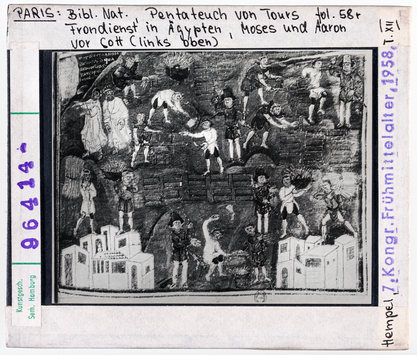 PARIS: Bibl. Nat., Pentateuch von Tours fol. 58r
Frondienst in Ägypten, Moses und Aaron
vor Gott (links oben)
96414-
Kunstgesch.
Sem. Hamburg
Hempel 7. Kongr. Frühmittelalter, 1958, T. XII